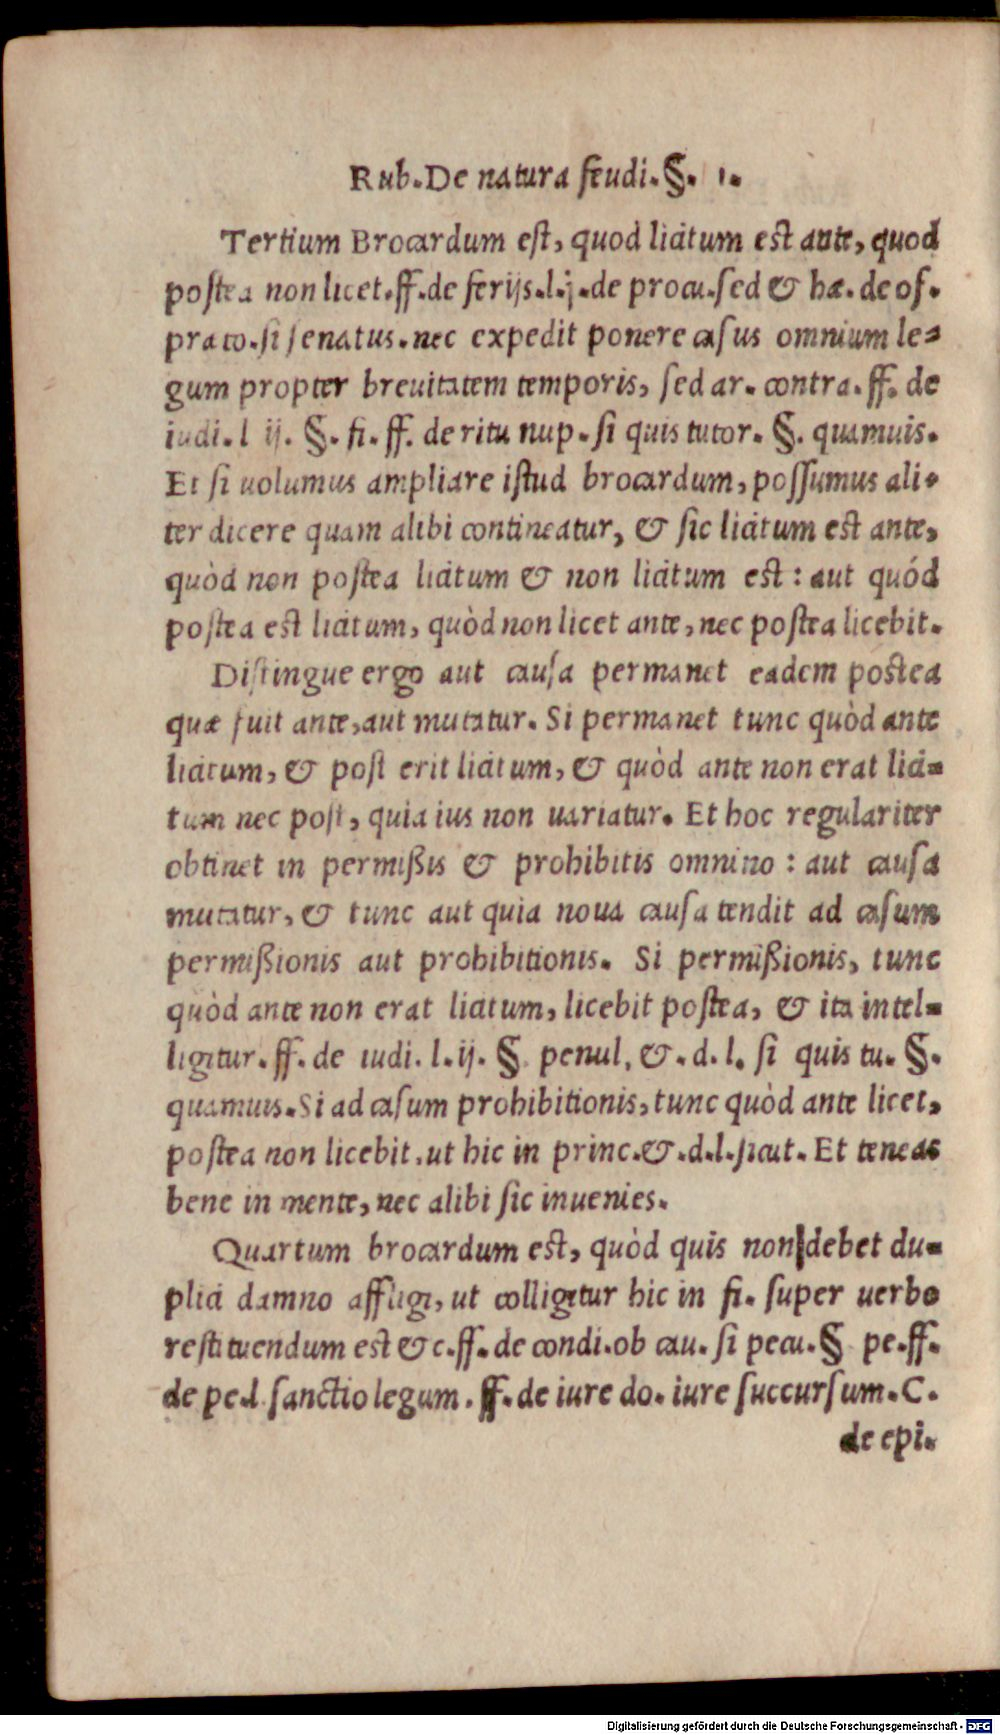 Rub. De natura feudi. §. 1.
Tertium Brocardum est, quod licitum est ante, quod
postea non licet. ff. de ferijs. l. j. de procu. sed & hæ. de of.
præto. si senatus. nec expedit ponere casus omnium le-
gum propter breuitatem temporis, sed ar. contra. ff. de
iudi. l ij. §. fi. ff. de ritu nup. si quis tutor. §. quamuis.
Et si uolumus ampliare istud brocardum, possumus ali-
ter dicere quam alibi contineatur, & sic licitum est ante,
quòd non postea licitum & non licitum est: aut quód
postea est licitum, quòd non licet ante, nec postea licebit.
Distingue ergo aut causa permanet eadem postea
quæ fuit ante, aut mutatur. Si permanet tunc quòd ante
licitum, & post erit licitum, & quòd ante non erat lici-
tum nec post, quia ius non uariatur. Et hoc regulariter
obtinet in permißis & prohibitis omnino: aut causa
mutatur, & tunc aut quia noua causa tendit ad casum
permißionis aut prohibitionis. Si permißionis, tunc
quòd ante non erat licitum, licebit postea, & ita intel-
ligitur. ff. de iudi. l. ij. § penul. &. d. l. si quis tu. §.
quamuis. Si ad casum prohibitionis, tunc quòd ante licet,
postea non licebit. ut hic in princ. &. d. l. sicut. Et teneas
bene in mente, nec alibi sic inuenies.
Quartum brocardum est, quòd quis non debet du-
plici damno affligi, ut colligitur hic in fi. super uerbo
restituendum est &c. ff. de condi. ob cau. si pecu. § pe. ff.
de pe. l. sanctio legum. ff. de iure do. iure succursum. C.
de epi.
Digitalisierung gefördert durch die Deutsche Forschungsgemeinschaft - DFG